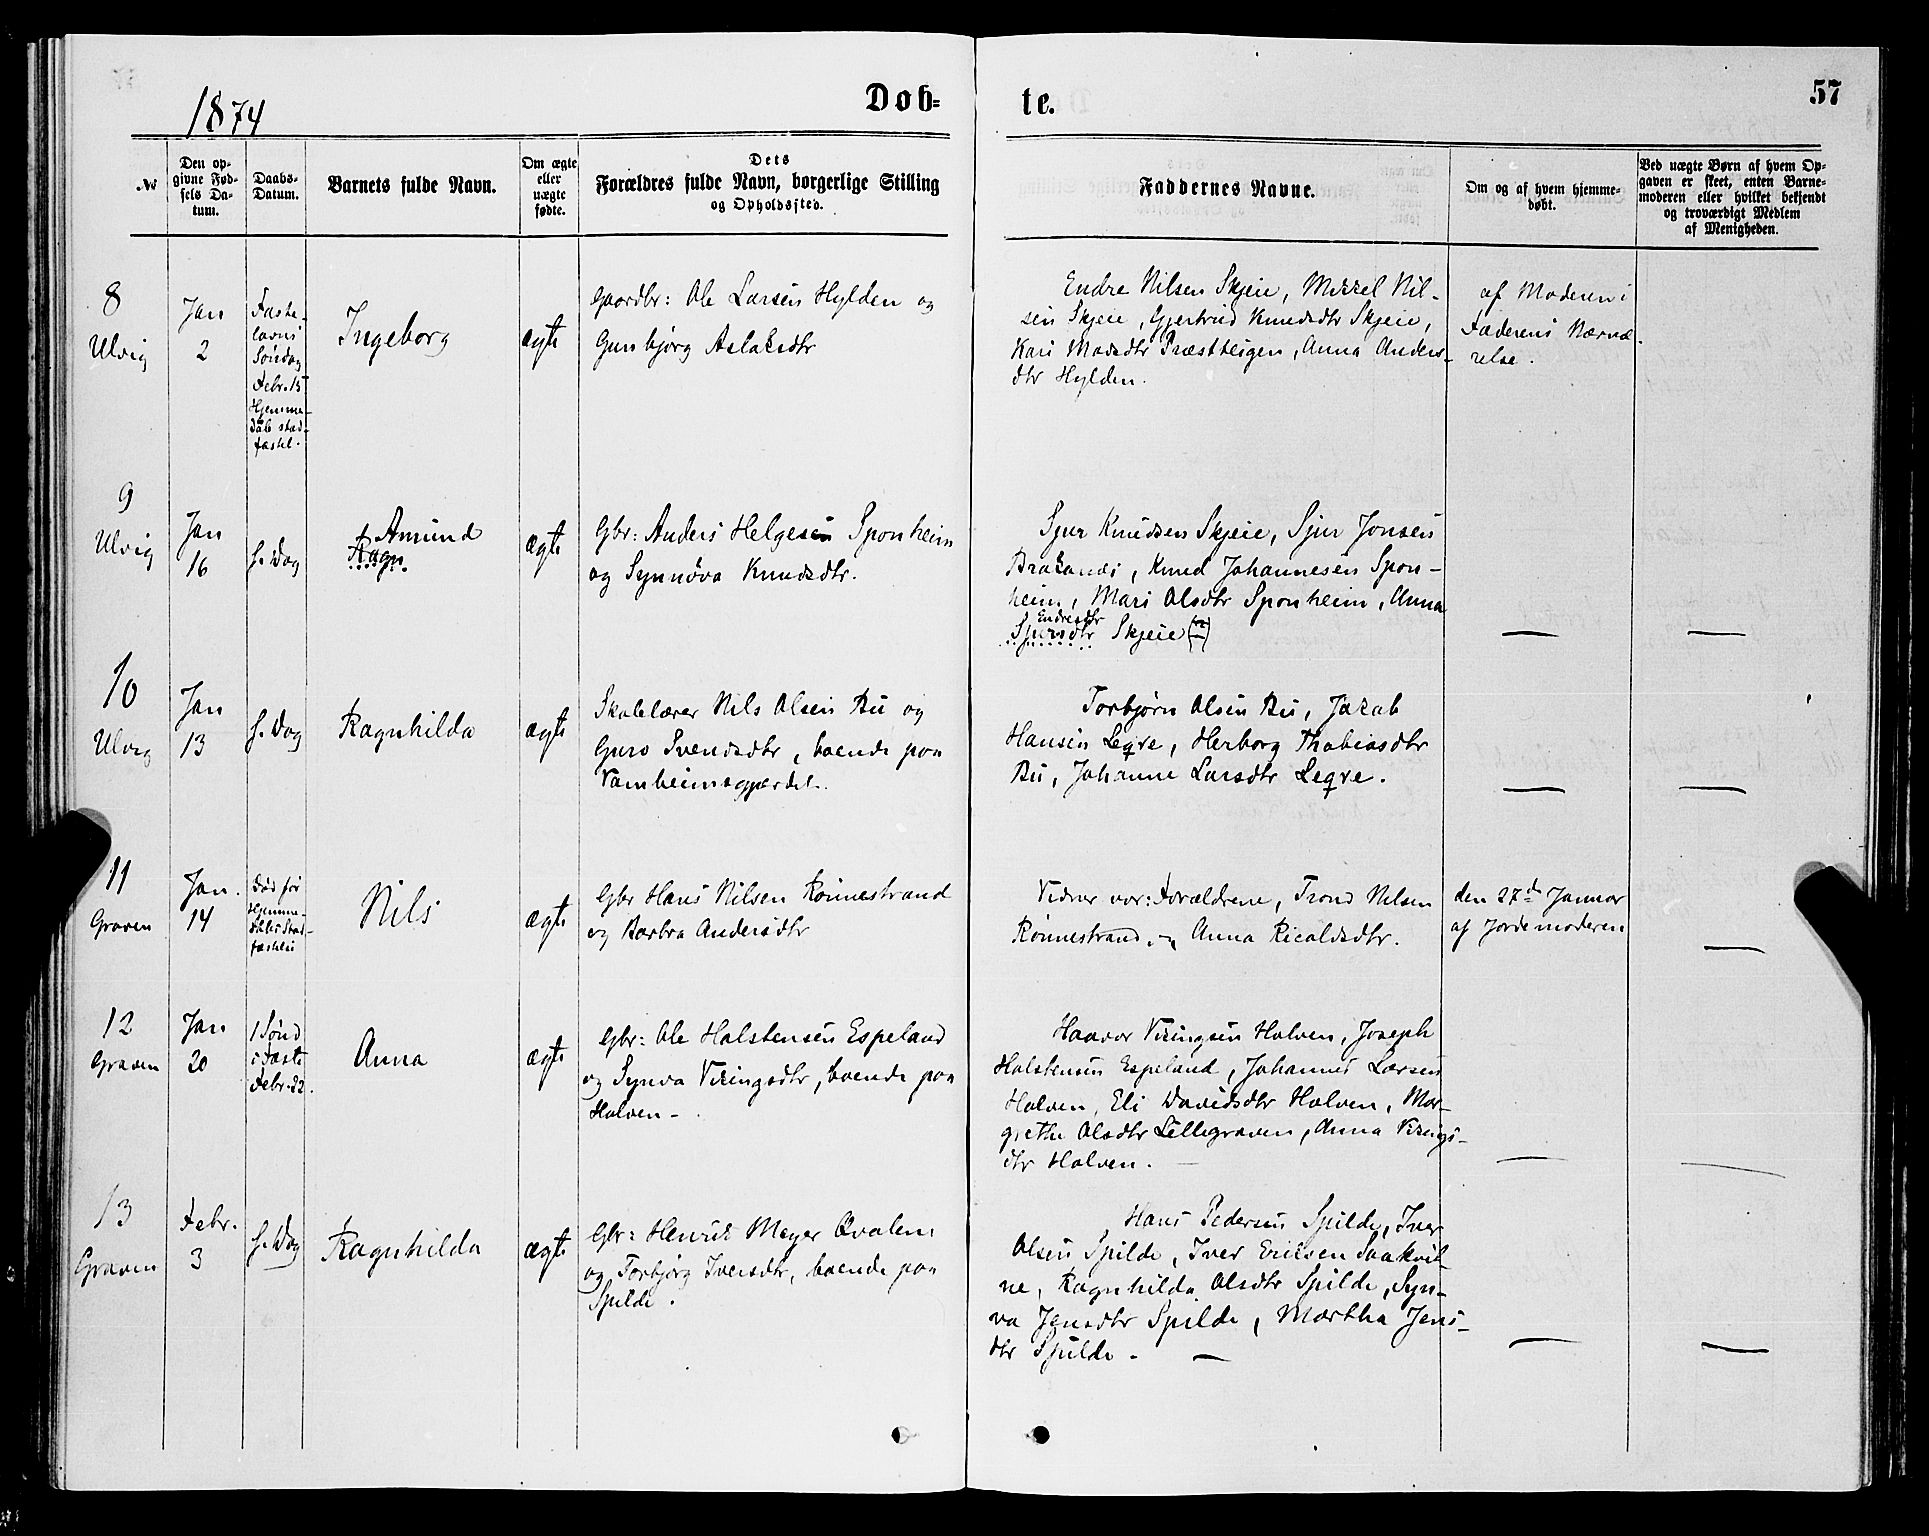 1874
Døb=
te.
57
№
Den op-
givne Fød-
sels Da-
tum.
Daabs-
Datum.
Barnets fulde Navn.
Om ægte
eller
uægte
fødte.
Dets
Forældres fulde Navn, borgerlige Stilling
og Opholdssted.
Faddernes Navne.
Om og af hvem hjemme-
døbt.
Ved uægte Børn af hvem Op-
gaven er skeet, enten Barne-
moderen eller hvilket bekjendt
og troværdigt Medlem
af Menigheden.
8
Ulvig
Jan
2
Faste-
lavns
Søndag
Febr. 15
Hjemme-
daab stad-
fæstet.
Ingeborg
ægte
Gaardbr: Ole Larsen Hylden og
Gunbjørg Aslaksdtr
Endre Nilsen Skjeie, Mikkel Nil-
sen Skjeie, Gjertrud Knudsdtr Skjeie,
Kari Madsdtr Præstteigen, Anna Anders-
dtr Hylden.
af Moderen i
Faderens Nærvæ-
relse.
9
Ulvig
Jan
16
s. Dag
Amund
Aagn
ægte
Gbr: Anders Helgesen Sponheim
og Synnøva Knudsdtr.
Sjur Knudsen Skjeie, Sjur Jonsen
Brakanes, Knud Johannesen Spon-
heim, Mari Olsdtr Sponheim, Anna
Endresdtr
Sjursdtr Skjeie
10
Ulvig
Jan
13
s. Dag
Ragnhilda
ægte
Skolelærer Nils Olsen Bu og
Guro Svendsdtr, boende paa
Vamheimsgjærdet.
Torbjørn Olsen Bu, Jakob
Hansen Leqve, Herborg Thobiasdtr
Bu, Johanne Larsdtr Leqve.
11
Graven
Jan.
14
Død før
Hjemme-
daabs Stad-
fæstelse
Nils
ægte
Gbr Hans Nilsen Rønnestrand
og Barbra Andersdtr
Vidner var: Forældrene, Trond Nilsen
Rønnestrand, og Anna Ricoldsdtr.
den 27de Januar
af Jordemoderen
12
Graven
Jan
20
1 Sønd
i Faste
Febr. 22.
Anna
ægte
Gbr: Ole Halstensen Espeland
og Synva Vikingsdtr, boende paa
Halven -
Haavor Vikingsen Halven, Joseph
Halstensen Espeland, Johannes Larsen
Halven, Eli Davidsdtr Halven, Mar-
grethe Olsdtr Lillegraven, Anna Vikings-
dtr Halven.
13
Graven
Febr.
3
s. Dag
Ragnhilda
ægte
Gbr: Henrik Meyer Qvalen
og Torbjørg Iversdtr, boende paa
Spilde.
Hans Pedersen Spilde, Iver
Olsen Spilde, Iver Eriksen Saakvit-
ne, Ragnhilda Olsdtr Spilde, Syn-
va Jensdtr Spilde, Martha Jens-
dtr Spilde. -